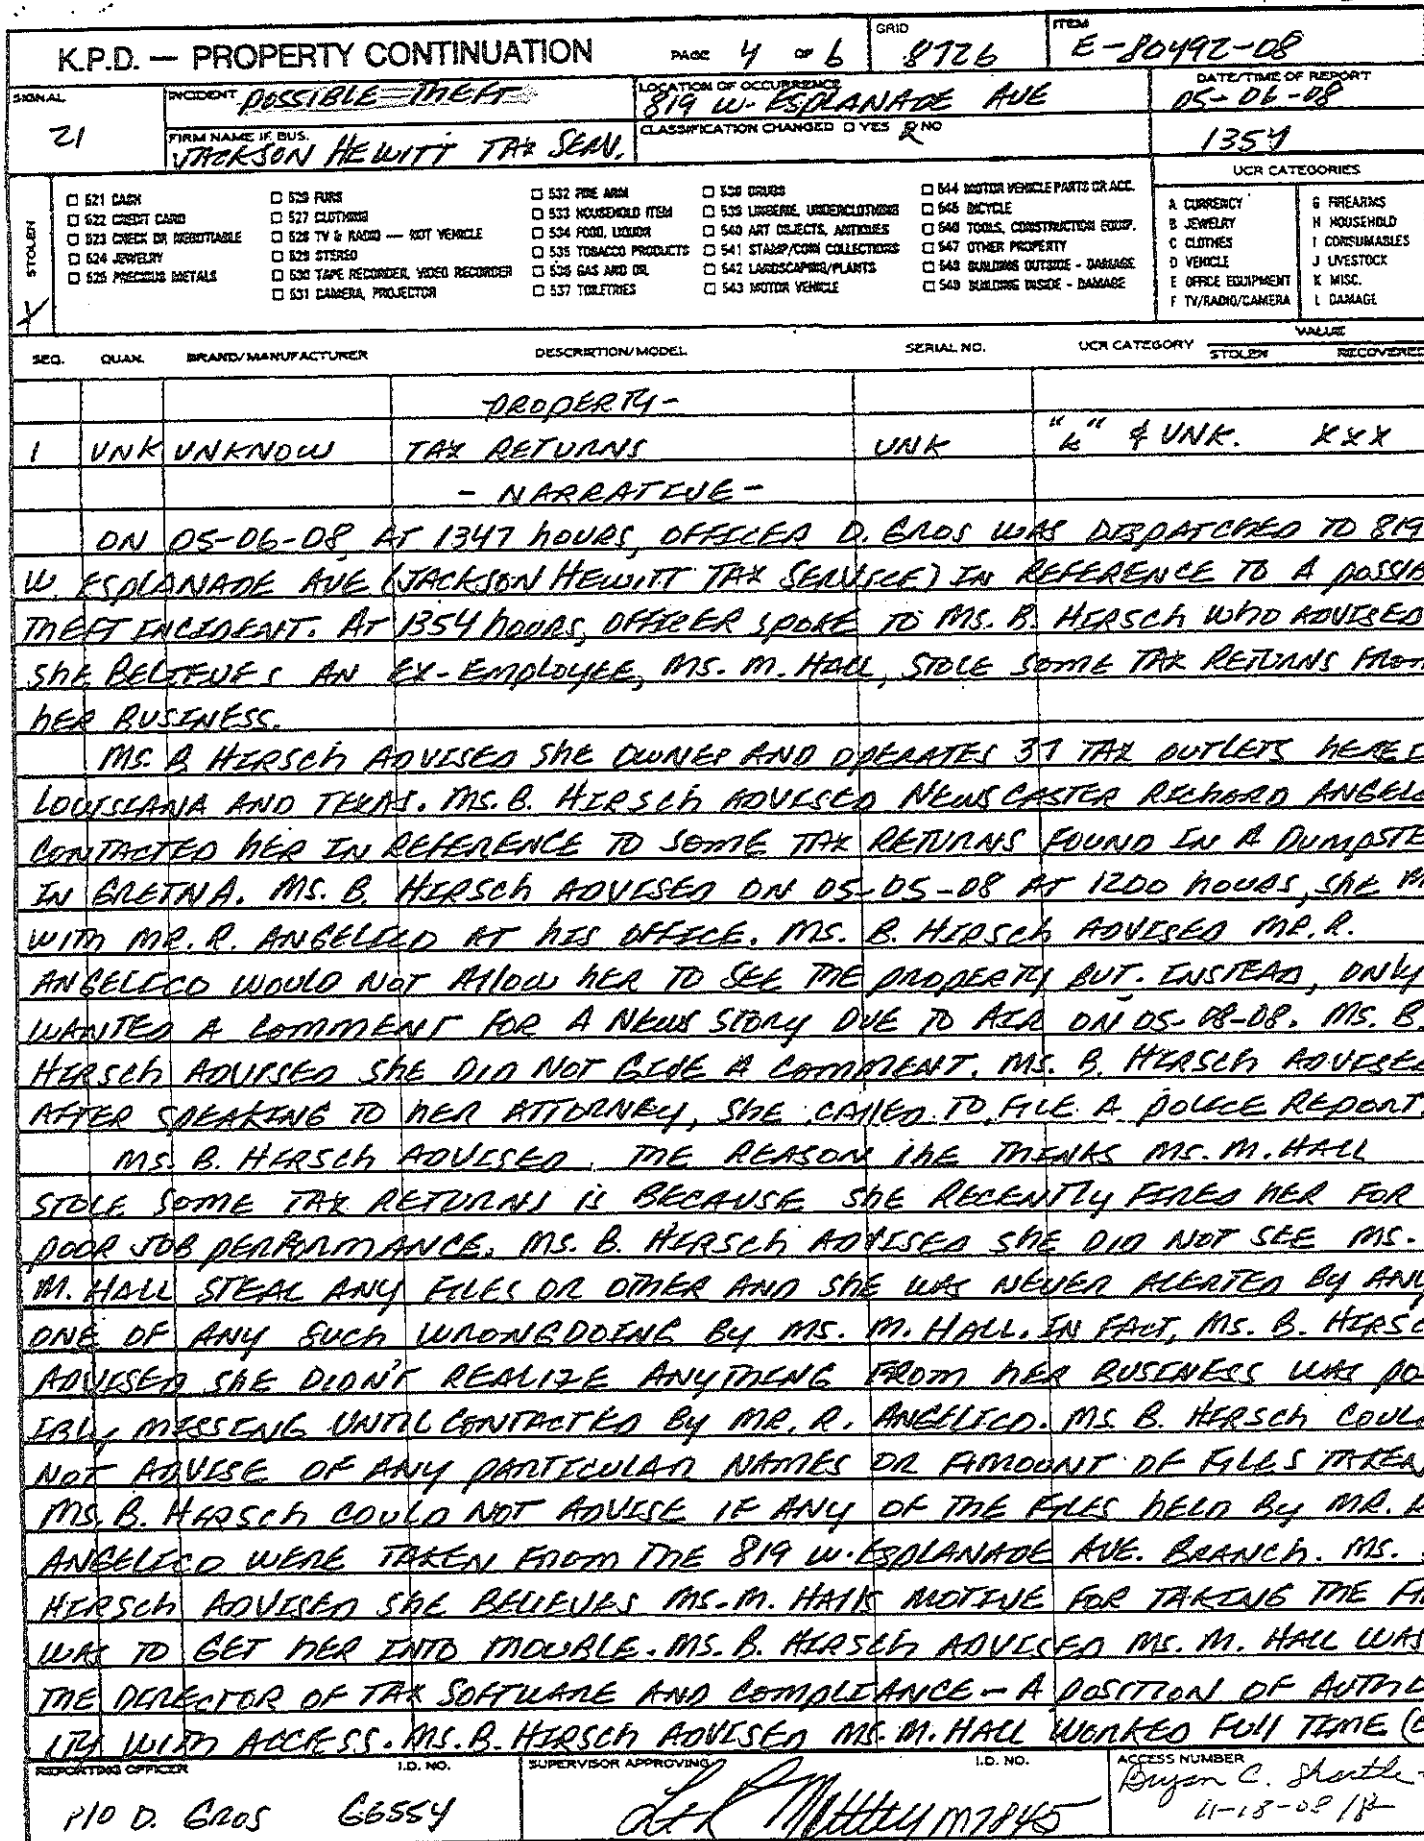 K.P.D. — PROPERTY CONTINUATION PAGE 4 OF 6 GRID 8726 ITEM E-80492-08
SIGNAL 21 INCIDENT POSSIBLE THEFT LOCATION OF OCCURRENCE 819 W. ESPLANADE AVE DATE/TIME OF REPORT 05-06-08
FIRM NAME IF BUS. JACKSON HEWITT TAX SERV. CLASSIFICATION CHANGED □ YES □ NO 1354
STOLEN X
□ 521 CASH
□ 522 CREDIT CARD
□ 523 CHECK OR NEGOTIABLE
□ 524 JEWELRY
□ 525 PRECIOUS METALS
□ 526 FURS
□ 527 CLOTHING
□ 528 TV & RADIO — NOT VEHICLE
□ 529 STEREO
□ 530 TAPE RECORDER, VIDEO RECORDER
□ 531 CAMERA, PROJECTOR
□ 532 FIRE ARM
□ 533 HOUSEHOLD ITEM
□ 534 FOOD, LIQUOR
□ 535 TOBACCO PRODUCTS
□ 536 GAS AND OIL
□ 537 TOILETRIES
□ 538 DRUGS
□ 539 LINGERIE, UNDERCLOTHING
□ 540 ART OBJECTS, ANTIQUES
□ 541 STAMP/COIN COLLECTIONS
□ 542 LANDSCAPING/PLANTS
□ 543 MOTOR VEHICLE
□ 544 MOTOR VEHICLE PARTS OR ACC.
□ 545 BICYCLE
□ 546 TOOLS, CONSTRUCTION EQUIP.
□ 547 OTHER PROPERTY
□ 548 BUILDING OUTSIDE - DAMAGE
□ 549 BUILDING INSIDE - DAMAGE
UCR CATEGORIES
A CURRENCY
B JEWELRY
C CLOTHES
D VEHICLE
E OFFICE EQUIPMENT
F TV/RADIO/CAMERA
G FIREARMS
H HOUSEHOLD
I CONSUMABLES
J LIVESTOCK
K MISC.
L DAMAGE
SEQ. QUAN. BRAND/MANUFACTURER DESCRIPTION/MODEL SERIAL NO. UCR CATEGORY VALUE STOLEN RECOVERED
PROPERTY-
1 UNK UNKNOW TAX RETURNS UNK "K" $ UNK. XXX
- NARRATIVE -
ON 05-06-08, AT 1347 hOURS, OFFICER D. GROS WAS DISPATCHED TO 819
W. ESPLANADE AVE (JACKSON HEWITT TAX SERVICE) IN REFERENCE TO A POSSIB
THEFT INCIDENT. AT 1354 hOURS, OFFICER SPOKE TO MS. B. HIRSCh WhO ADVISED
ShE BELIEVES AN EX-EMPLOYEE, MS. M. HALL, STOLE SOME TAX RETURNS FROM
hER BUSINESS.
MS. B. HIRSCh ADVISED ShE OWNES AND OPERATES 37 TAX OUTLETS hERE I
LOUISIANA AND TEXAS. MS. B. HIRSCh ADVISED NEWSCASTER RIChARD ANGELI
CONTACTED hER IN REFERENCE TO SOME TAX RETURNS FOUND IN A DUMPSTE
IN GRETNA. MS. B. HIRSCh ADVISED ON 05-05-08 AT 1200 hOURS, ShE M
WITh MR. R. ANGELICO AT hIS OFFICE. MS. B. HIRSCh ADVISED MR. R.
ANGELICO WOULD NOT AllOW hER TO SEE ThE PROPERTY BUT. INSTEAD, ONLY
WANTED A COMMENT FOR A NEWS STORY DUE TO AIR ON 05-08-08. MS. B.
HIRSCh ADVISED ShE DID NOT GIVE A COMMENT. MS. B. HIRSCh ADVISED
AFTER SPEAKING TO hER ATTORNEY, ShE CAllED TO FILE A POLICE REPORT
MS. B. HIRSCh ADVISED, ThE REASON ShE ThINKS MS. M. HALL
STOLE SOME TAX RETURNS iS BECAUSE ShE RECENTLY FIRED hER FOR
POOR JOB PERFORMANCE. MS. B. HIRSCh ADVISED ShE DID NOT SEE MS.
M. HALL STEAL ANY FILES OR OThER AND ShE WAS NEVER ALERTED By ANY
ONE OF ANY SUCh WRONGDOING By MS. M. HALL. IN FACT, MS. B. HIRSC
ADVISED ShE DIDN'T REALIZE ANYThING FROM hER BUSINESS WAS PO
IBLY MISSING UNTIL CONTACTED By MR. R. ANGELICO. MS. B. HIRSCh COULD
NOT ADVISE OF ANY PARTICULAR NAMES OR AMOUNT OF FILES TAKEN
MS. B. HIRSCh COULD NOT ADVISE IF ANY OF ThE FILES hELD By MR. R
ANGELICO WERE TAKEN FROM ThE 819 W. ESPLANADE AVE. BRANCh. MS.
HIRSCh ADVISED ShE BELIEVES MS. M. HAllS MOTIVE FOR TAKING ThE FI
WAS TO GET hER INTO TROUBLE. MS. B. HIRSCh ADVISED MS. M. HALL WAS
ThE DIRECTOR OF TAX SOFTWARE AND COMPLIANCE - A POSITION OF AUThO
ITY WITh ACCESS. MS. B. HIRSCh ADVISED MS. M. HALL WORKED FUll TIME (
REPORTING OFFICER I.D. NO. SUPERVISOR APPROVING I.D. NO. ACCESS NUMBER
P/O D. GROS G6554 M7845 Bryan C. Shartle
11-18-08